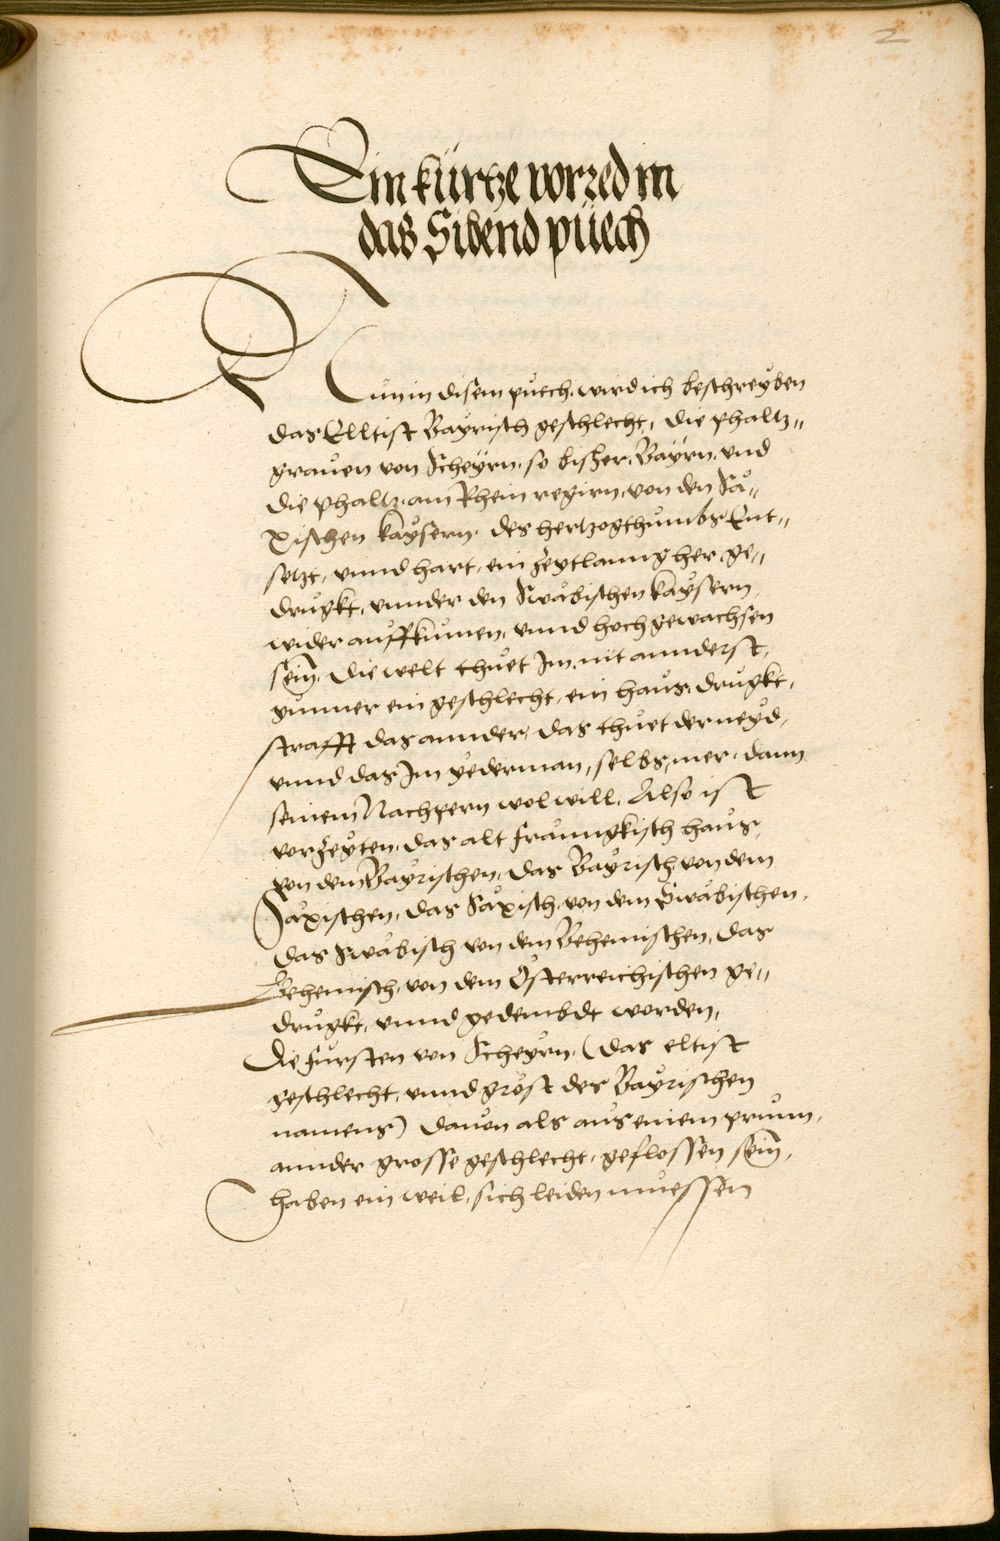 2
Ein kürtze vorred in
das Sibend püech
Nun in disem puech, wird ich beschreyben
das Elltist Bayrisch geschlecht, die phaltz„
grauen von Scheyrn, so bisher, Bayrn, vnd
die phaltz, am Rhein regirn, von den Sä„
xischen kaysern, des hertzogthumbs Ent„
setzt, vnnd hart, ein zeytlanng her, ge„
drugkt, vnnder den Swäbischen kaysern
wider auffkumen, vnnd hoch gewachsen
sein, die welt thuet Im, nit annderst,
ymmer ein geschlecht, ein haus, drugkt,
strafft das annder, das thuet der neyd,
vnnd das Im yederman, selbs, mer, dann
seinem Nachpern wol will, Also ist
vor zeyten, das alt franngkisch haus,
von dem Bayrischen, das Bayrisch, von dem
Säxischen, das Säxisch, von dem Swäbischen,
das Swäbisch von dem Behemischen, das
Behemisch, von dem Österreichischen ge„
drugkt, vnnd gedembdt worden,
Die fürsten von Scheyrn, (das eltist
geschlecht, vnnd gröst des Bayrischen
namens) dauon als aus einem prunn,
annder grosse geschlecht, geflossen sein,
haben ein weil, sich leiden muessen